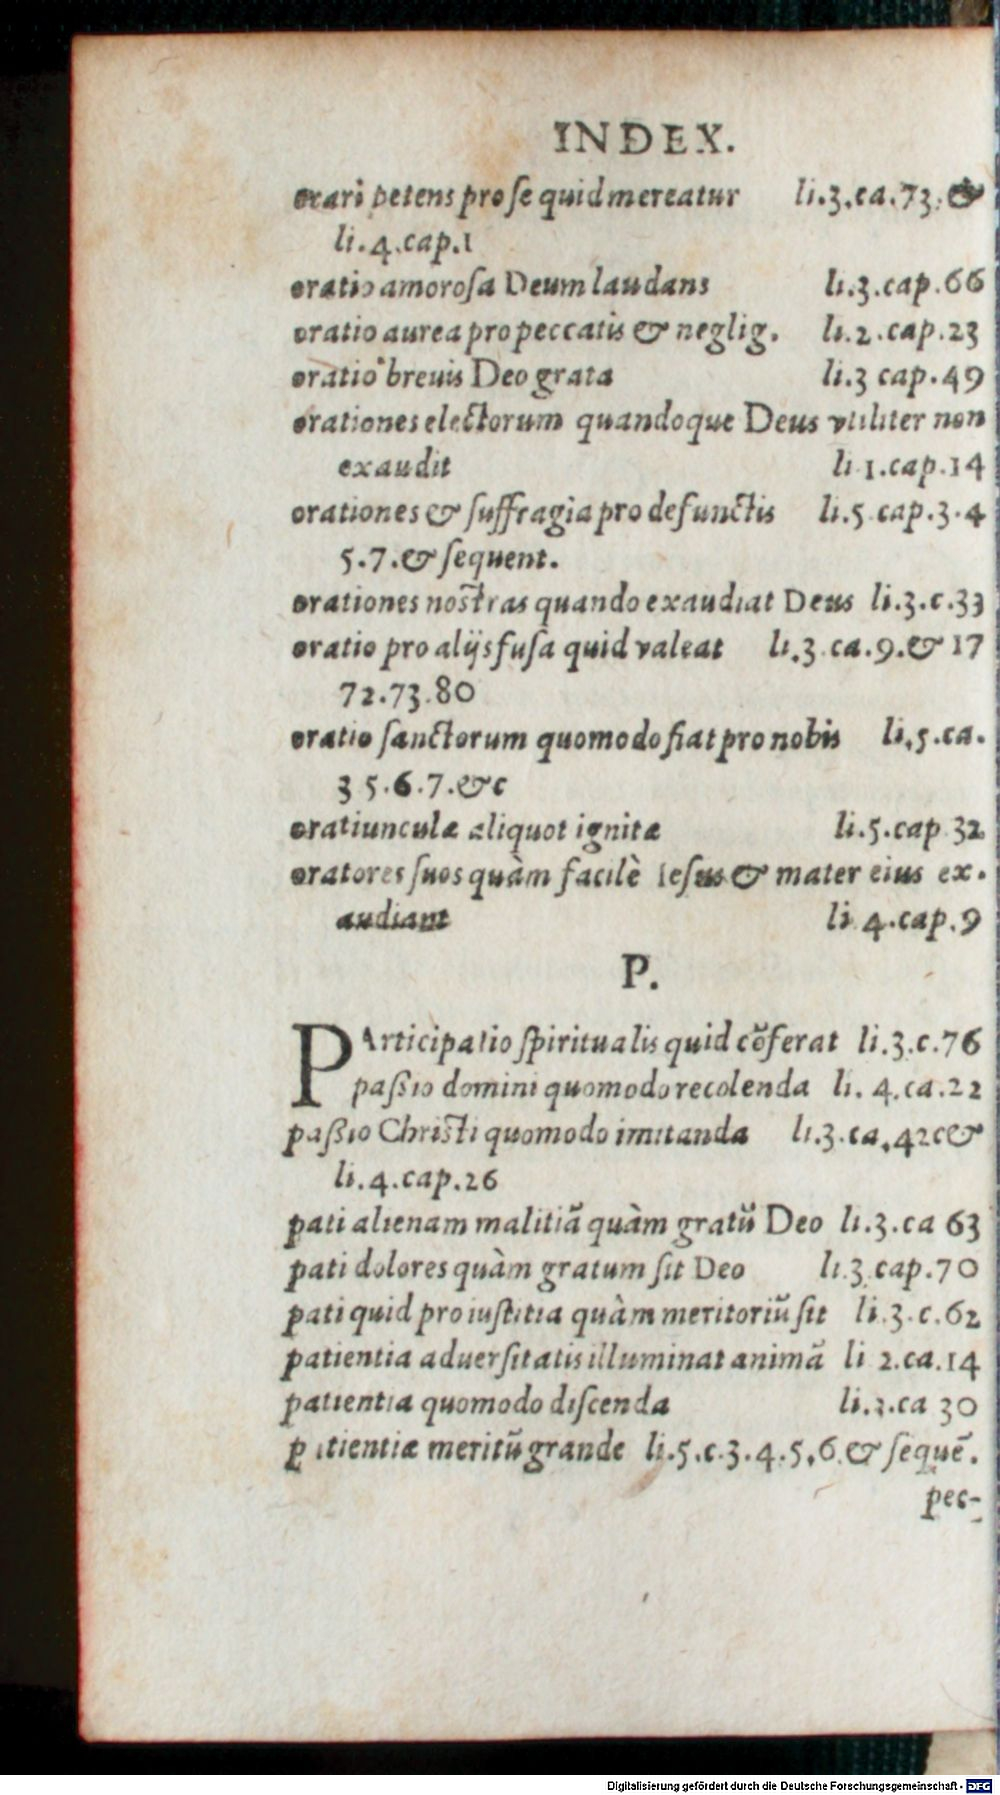 INDEX.
orari petens pro se quid mereatur li.3.ca.73.&
li.4.cap.1
oratio amorosa Deum laudans li.3.cap.66
oratio aurea pro peccatis & neglig. li.2.cap.23
oratio breuis Deo grata li.3 cap.49
orationes electorum quandoque Deus vtiliter non
exaudit li 1.cap.14
orationes & suffragia pro defunctis li.5 cap.3.4
5.7.& sequent.
orationes nostras quando exaudiat Deus li.3.c.33
oratio pro alijs fusa quid valeat li.3 ca.9.& 17
72.73.80
oratio sanctorum quomodo fiat pro nobis li.5.ca.
3 5.6.7.&c
oratiunculæ aliquot ignitæ li.5.cap 32
oratores suos quàm facilè Iesus & mater eius ex-
audiant li 4.cap.9
P.
PArticipatio spiritualis quid cõferat li.3.c.76
passio domini quomodo recolenda li. 4.ca.22
passio Christi quomodo imitanda li.3.ca.42c&
li.4.cap.26
pati alienam malitiã quàm gratũ Deo li.3.ca 63
pati dolores quàm gratum sit Deo li.3.cap.70
pati quid pro iustitia quàm meritoriũ sit li.3.c.62
patientia aduersitatis illuminat animã li 2.ca.14
patientia quomodo discenda li.3.ca 30
patientiæ meritũ grande li.5.c.3.4.5.6.& sequẽ.
pec-
Digitalisierung gefördert durch die Deutsche Forschungsgemeinschaft - DFG